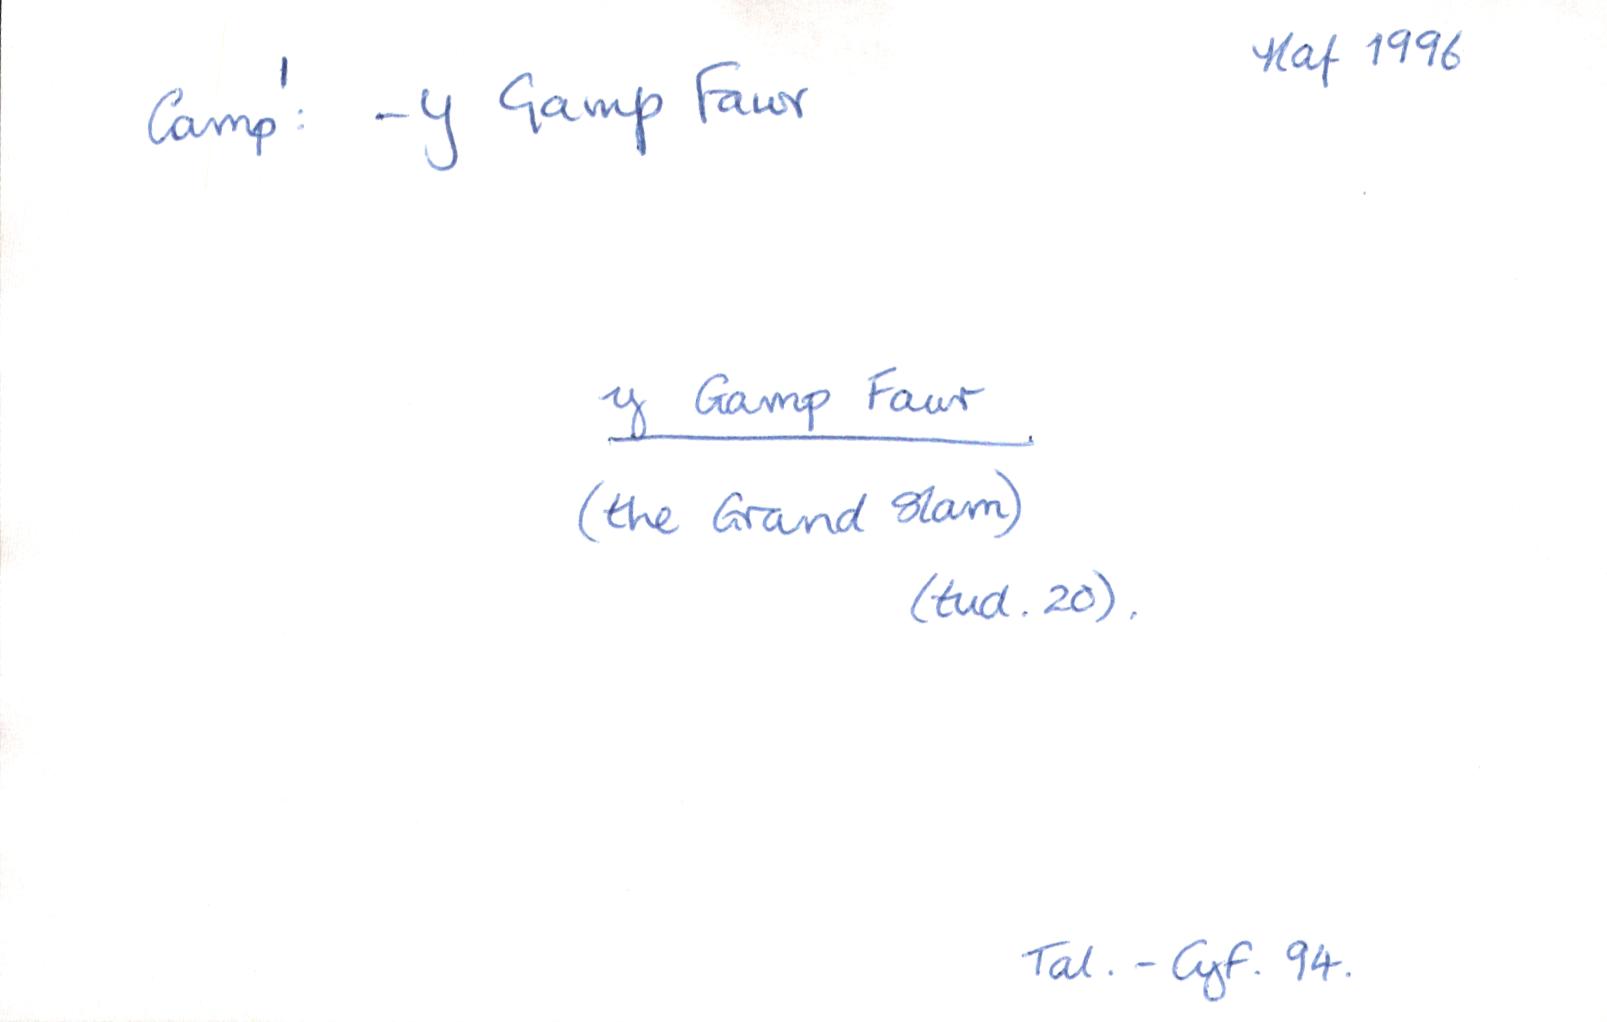 Camp¹: - y Gamp Fawr
Haf 1996
y Gamp Fawr
(the Grand Slam)
(tud. 20).
Tal. - Cyf. 94.